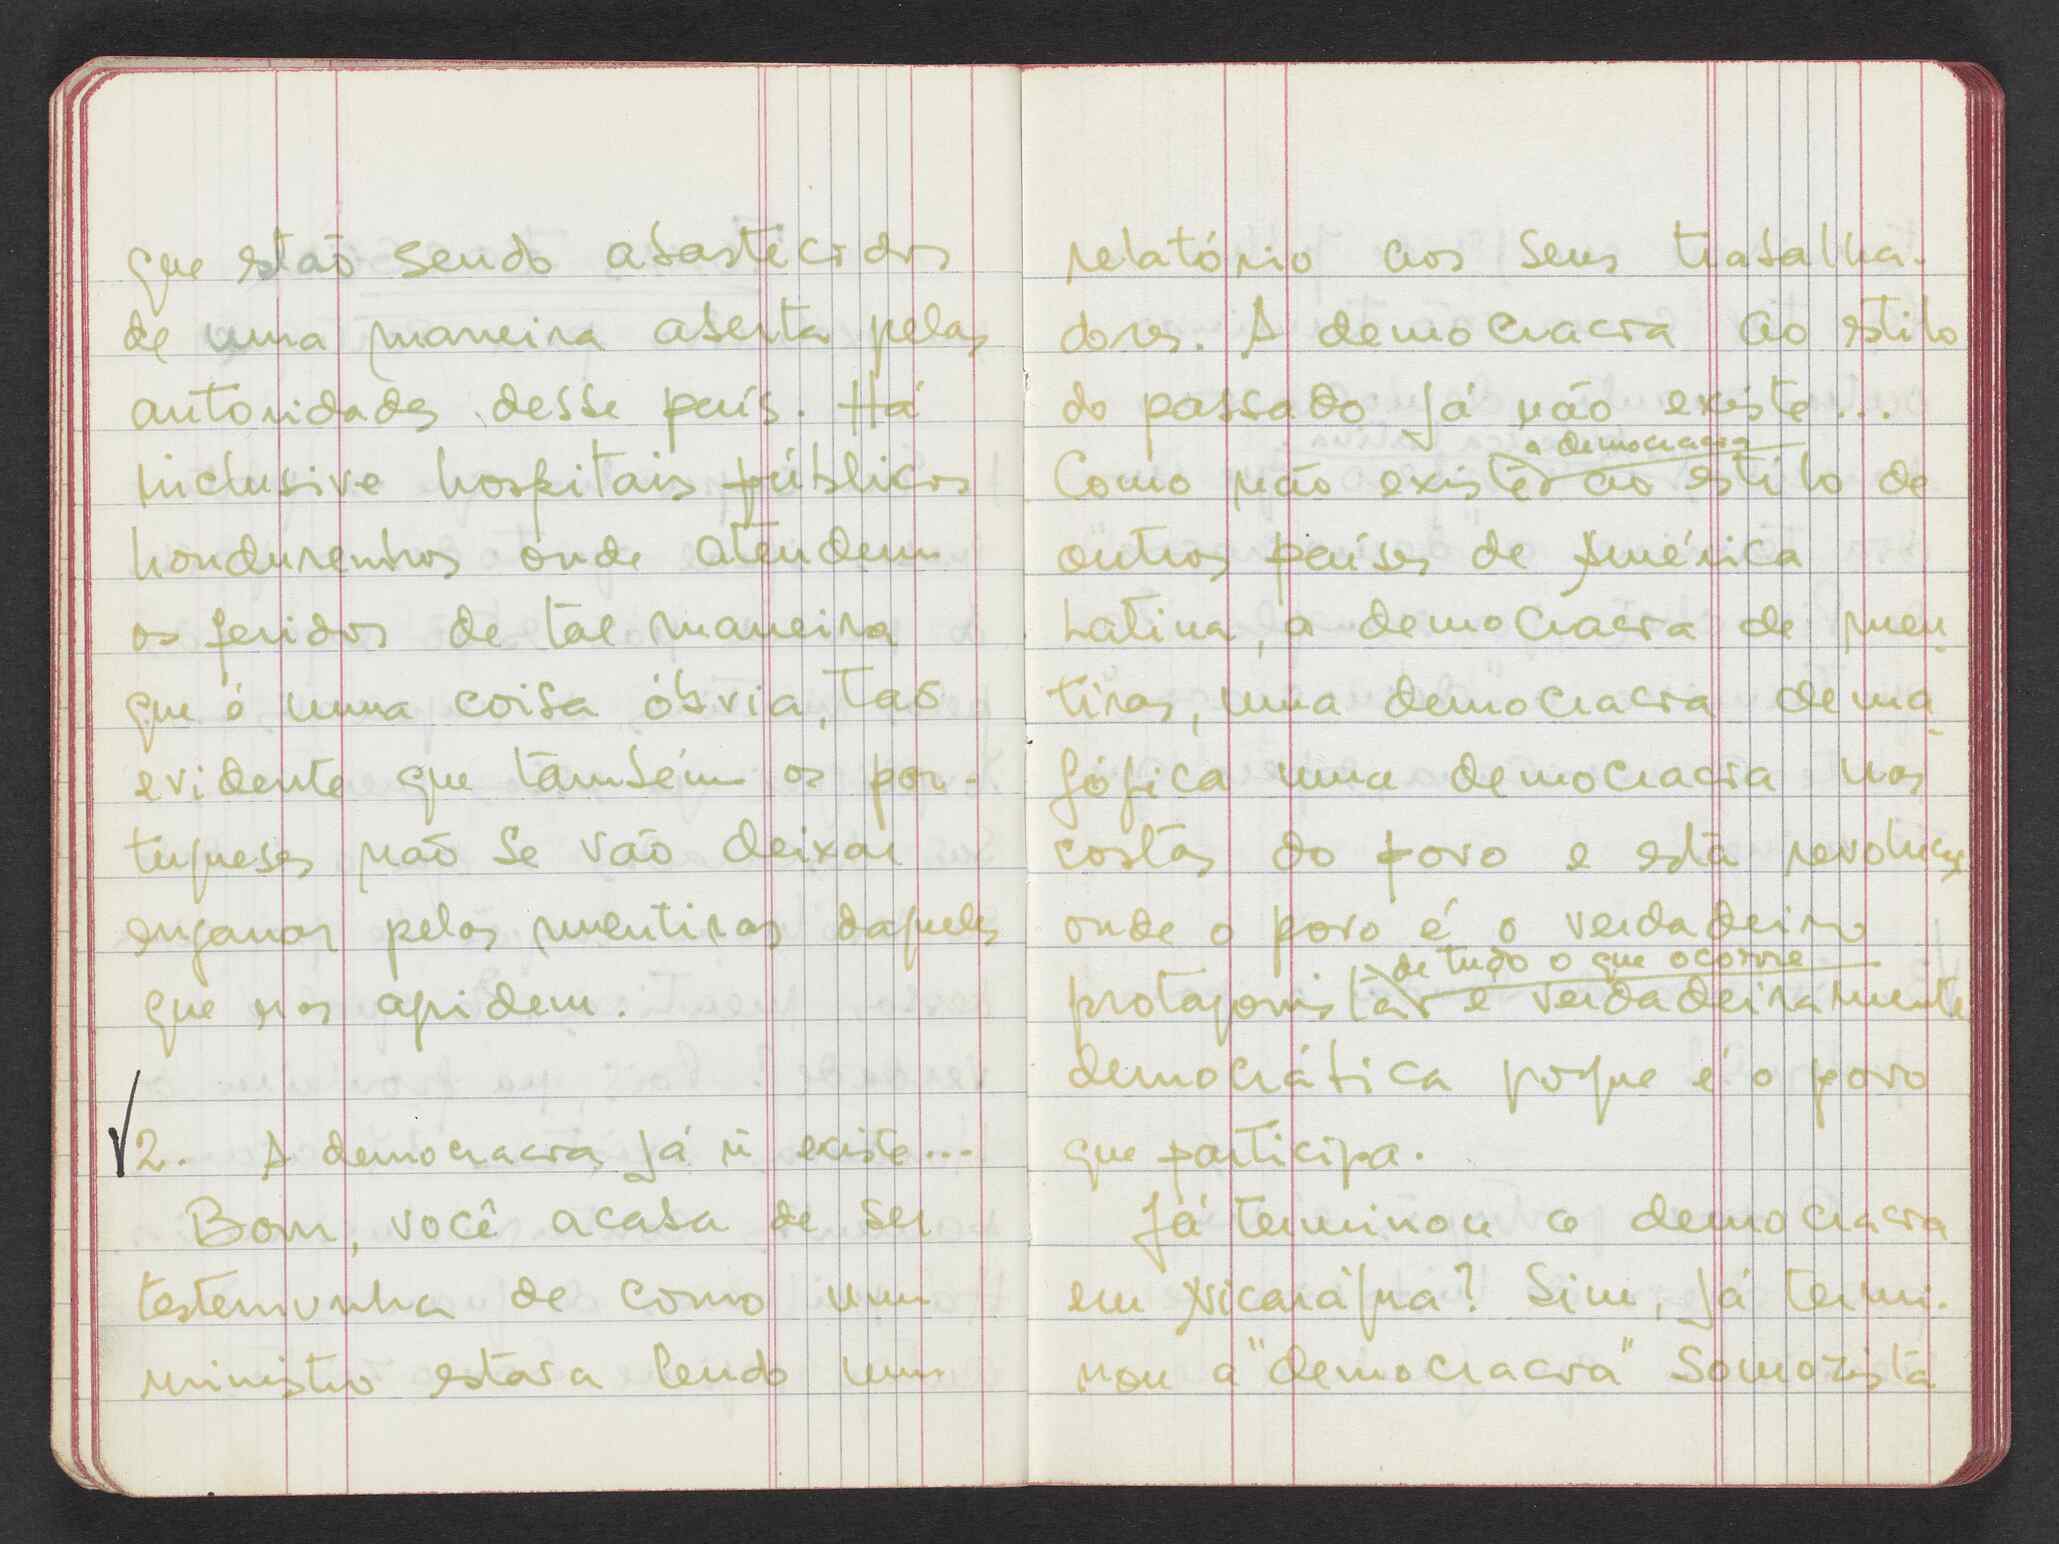 que estão sendo abastecidos
de uma maneira aberta pelas
autoridades desse país. Há
inclusive hospitais públicos
hondurenhos onde atendem
os feridos de tal maneira
que é uma coisa óbvia, tão
evidente que também os por-
tugueses não se vão deixar
enganar pelas mentiras daqueles
que nos agridem.
2. A democracia já ñ existe...
Bom, você acaba de ser
testemunha de como um
ministro estava lendo um
relatório aos seus trabalha-
dores. A democracia ao estilo
do passado já não existe...
a democracia
Como não existe ao estilo de
outros países de América
Latina, a democracia de men-
tiras, uma democracia dema-
gógica uma democracia nas
costas do povo e esta revolução
onde o povo é o verdadeiro
de tudo o que ocorre
protagonista é verdadeiramente
democrática porque é o povo
que participa.
Já terminou a democracia
em Nicarágua? Sim, já termi-
nou a "democracia" Somozista